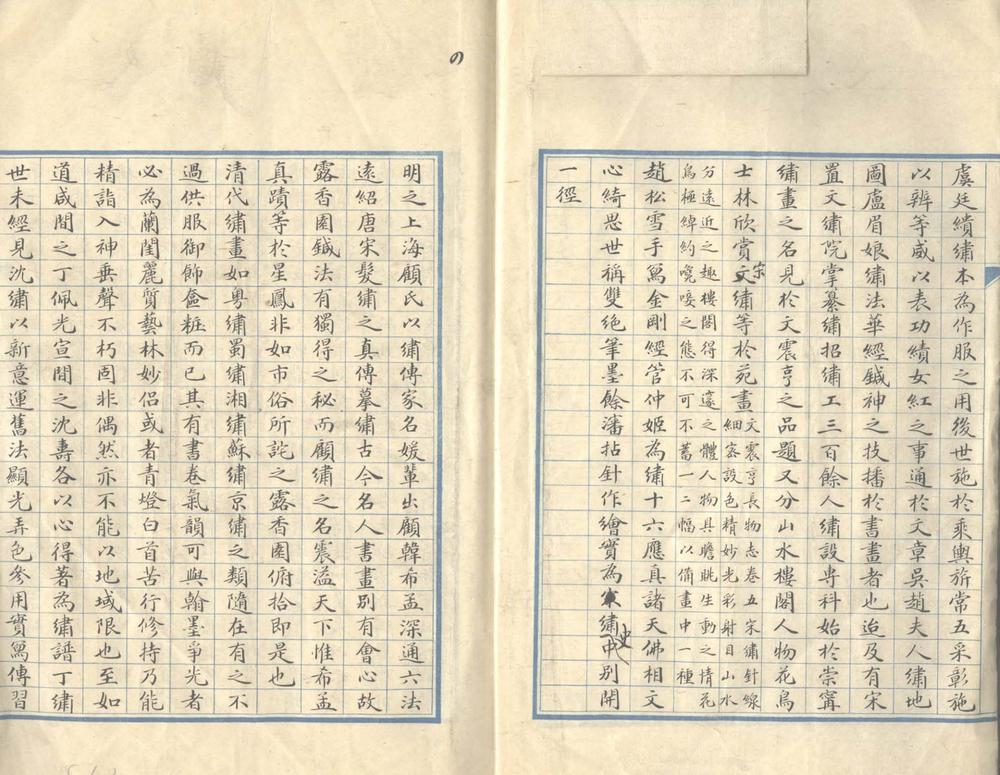 虞廷繢繡本為作服之用後世施於乘輿旂常五采彰施
以辨等威以表功績女紅之事通於文章吳趙夫人繡地
圖盧眉娘繡法華經鍼神之技播於書畫者也迨及有宋
置文繡院掌纂繡招繡工三百餘人繡設專科始於崇寧
繡畫之名見於文震亨之品題又分山水樓閣人物花鳥
士林欣賞宋繡等於苑畫文震亨長物志卷五宋繡針線
細密設色精妙光彩射目山水
分遠近之趣樓閣得深邃之體人物具瞻眺生動之情花
鳥極綽約嚵唼之態不可不蓄一二幅以備畫中一種
趙松雪手寫金剛經管仲姬為繡十六應真諸天佛相文
心綺思世稱雙絕筆墨餘瀋拈針作繪實為繡史別開
一徑
の
明之上海顧氏以繡傳家名媛輩出顧韓希孟深通六法
遠紹唐宋髮繡之真傳摹繡古今名人書畫別有會心故
露香園鍼法有獨得之秘而顧繡之名震溢天下惟希孟
真蹟等於星鳳非如市俗所詫之露香園俯拾即是也
清代繡畫如粵繡蜀繡湘繡蘇繡京繡之類隨在有之不
過供服御飾奩粧而已其有書卷氣韻可與翰墨爭光者
必為蘭閨麗質藝林妙侶或者青燈白首苦行修持乃能
精詣入神垂聲不朽固非偶然亦不能以地域限也至如
道咸間之丁佩光宣間之沈壽各以心得著為繡譜丁繡
世未經見沈繡以新意運舊法顯光弄色參用實寫傳習